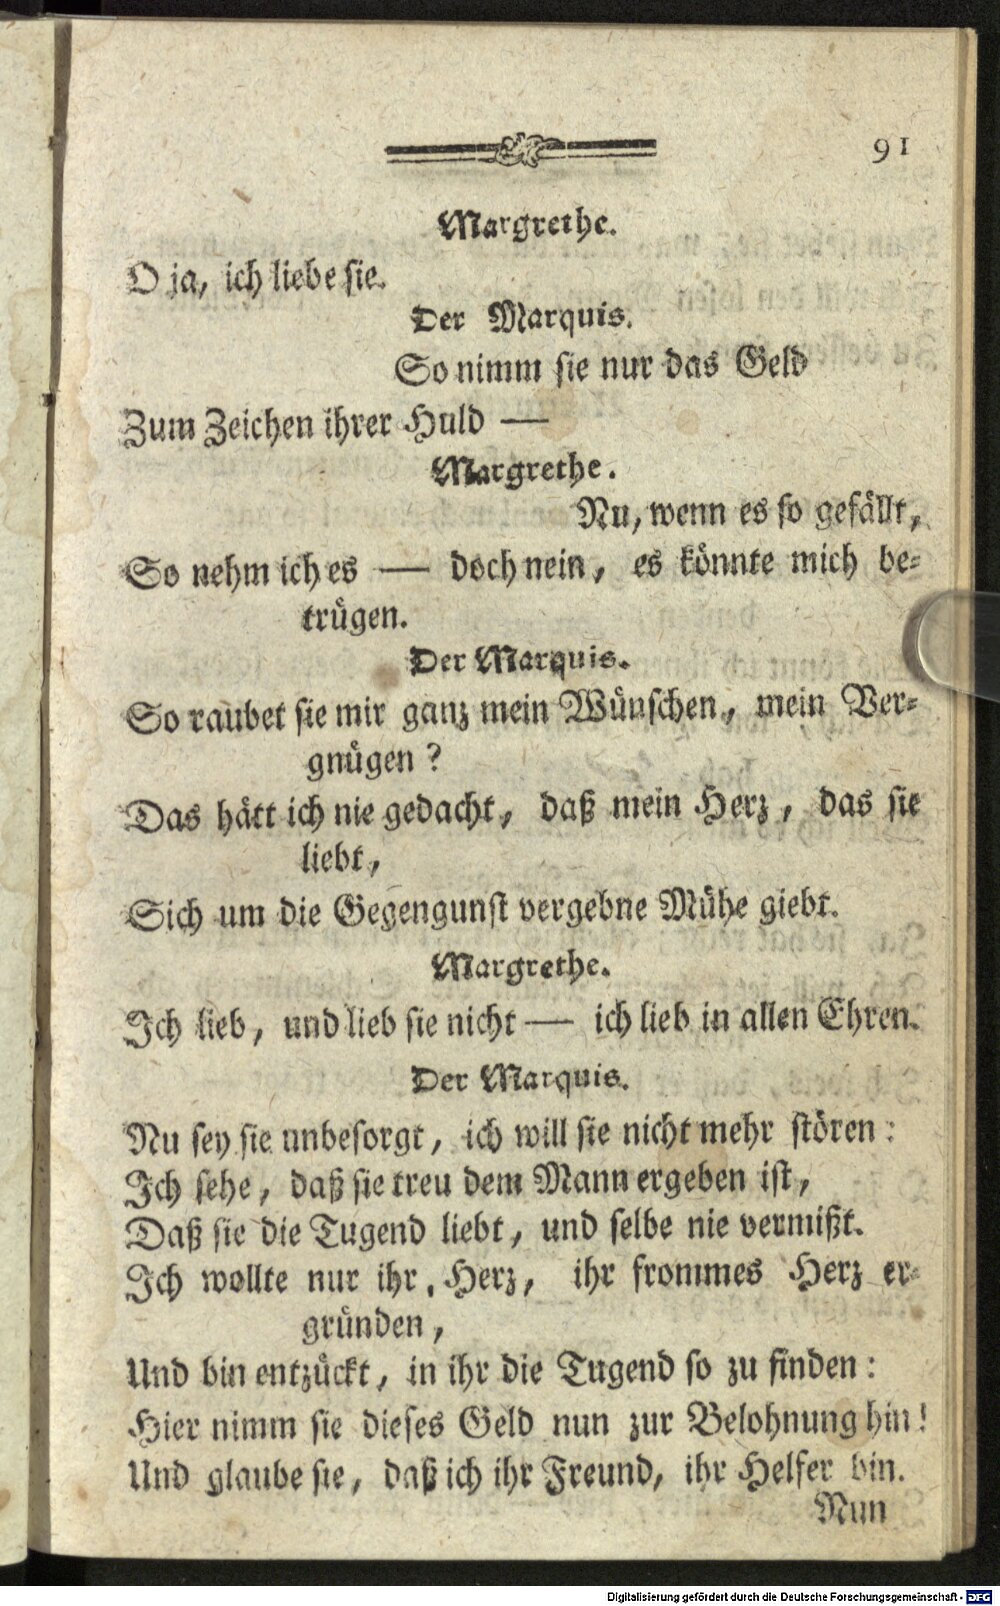 91
Margrethe.
O ja, ich liebe sie.
Der Marquis.
So nimm sie nur das Geld
Zum Zeichen ihrer Huld —
Margrethe.
Nu, wenn es so gefällt,
So nehm ich es — doch nein, es könnte mich be-
trügen.
Der Marquis.
So raubet sie mir ganz mein Wünschen, mein Ver-
gnügen?
Das hätt ich nie gedacht, daß mein Herz, das sie
liebt,
Sich um die Gegengunst vergebne Mühe giebt.
Margrethe.
Ich lieb, und lieb sie nicht — ich lieb in allen Ehren.
Der Marquis.
Nu sey sie unbesorgt, ich will sie nicht mehr stören:
Ich sehe, daß sie treu dem Mann ergeben ist,
Daß sie die Tugend liebt, und selbe nie vermißt.
Ich wollte nur ihr, Herz, ihr frommes Herz er-
gründen,
Und bin entzückt, in ihr die Tugend so zu finden:
Hier nimm sie dieses Geld nun zur Belohnung hin!
Und glaube sie, daß ich ihr Freund, ihr Helfer bin.
Nun
Digitalisierung gefördert durch die Deutsche Forschungsgemeinschaft - DFG